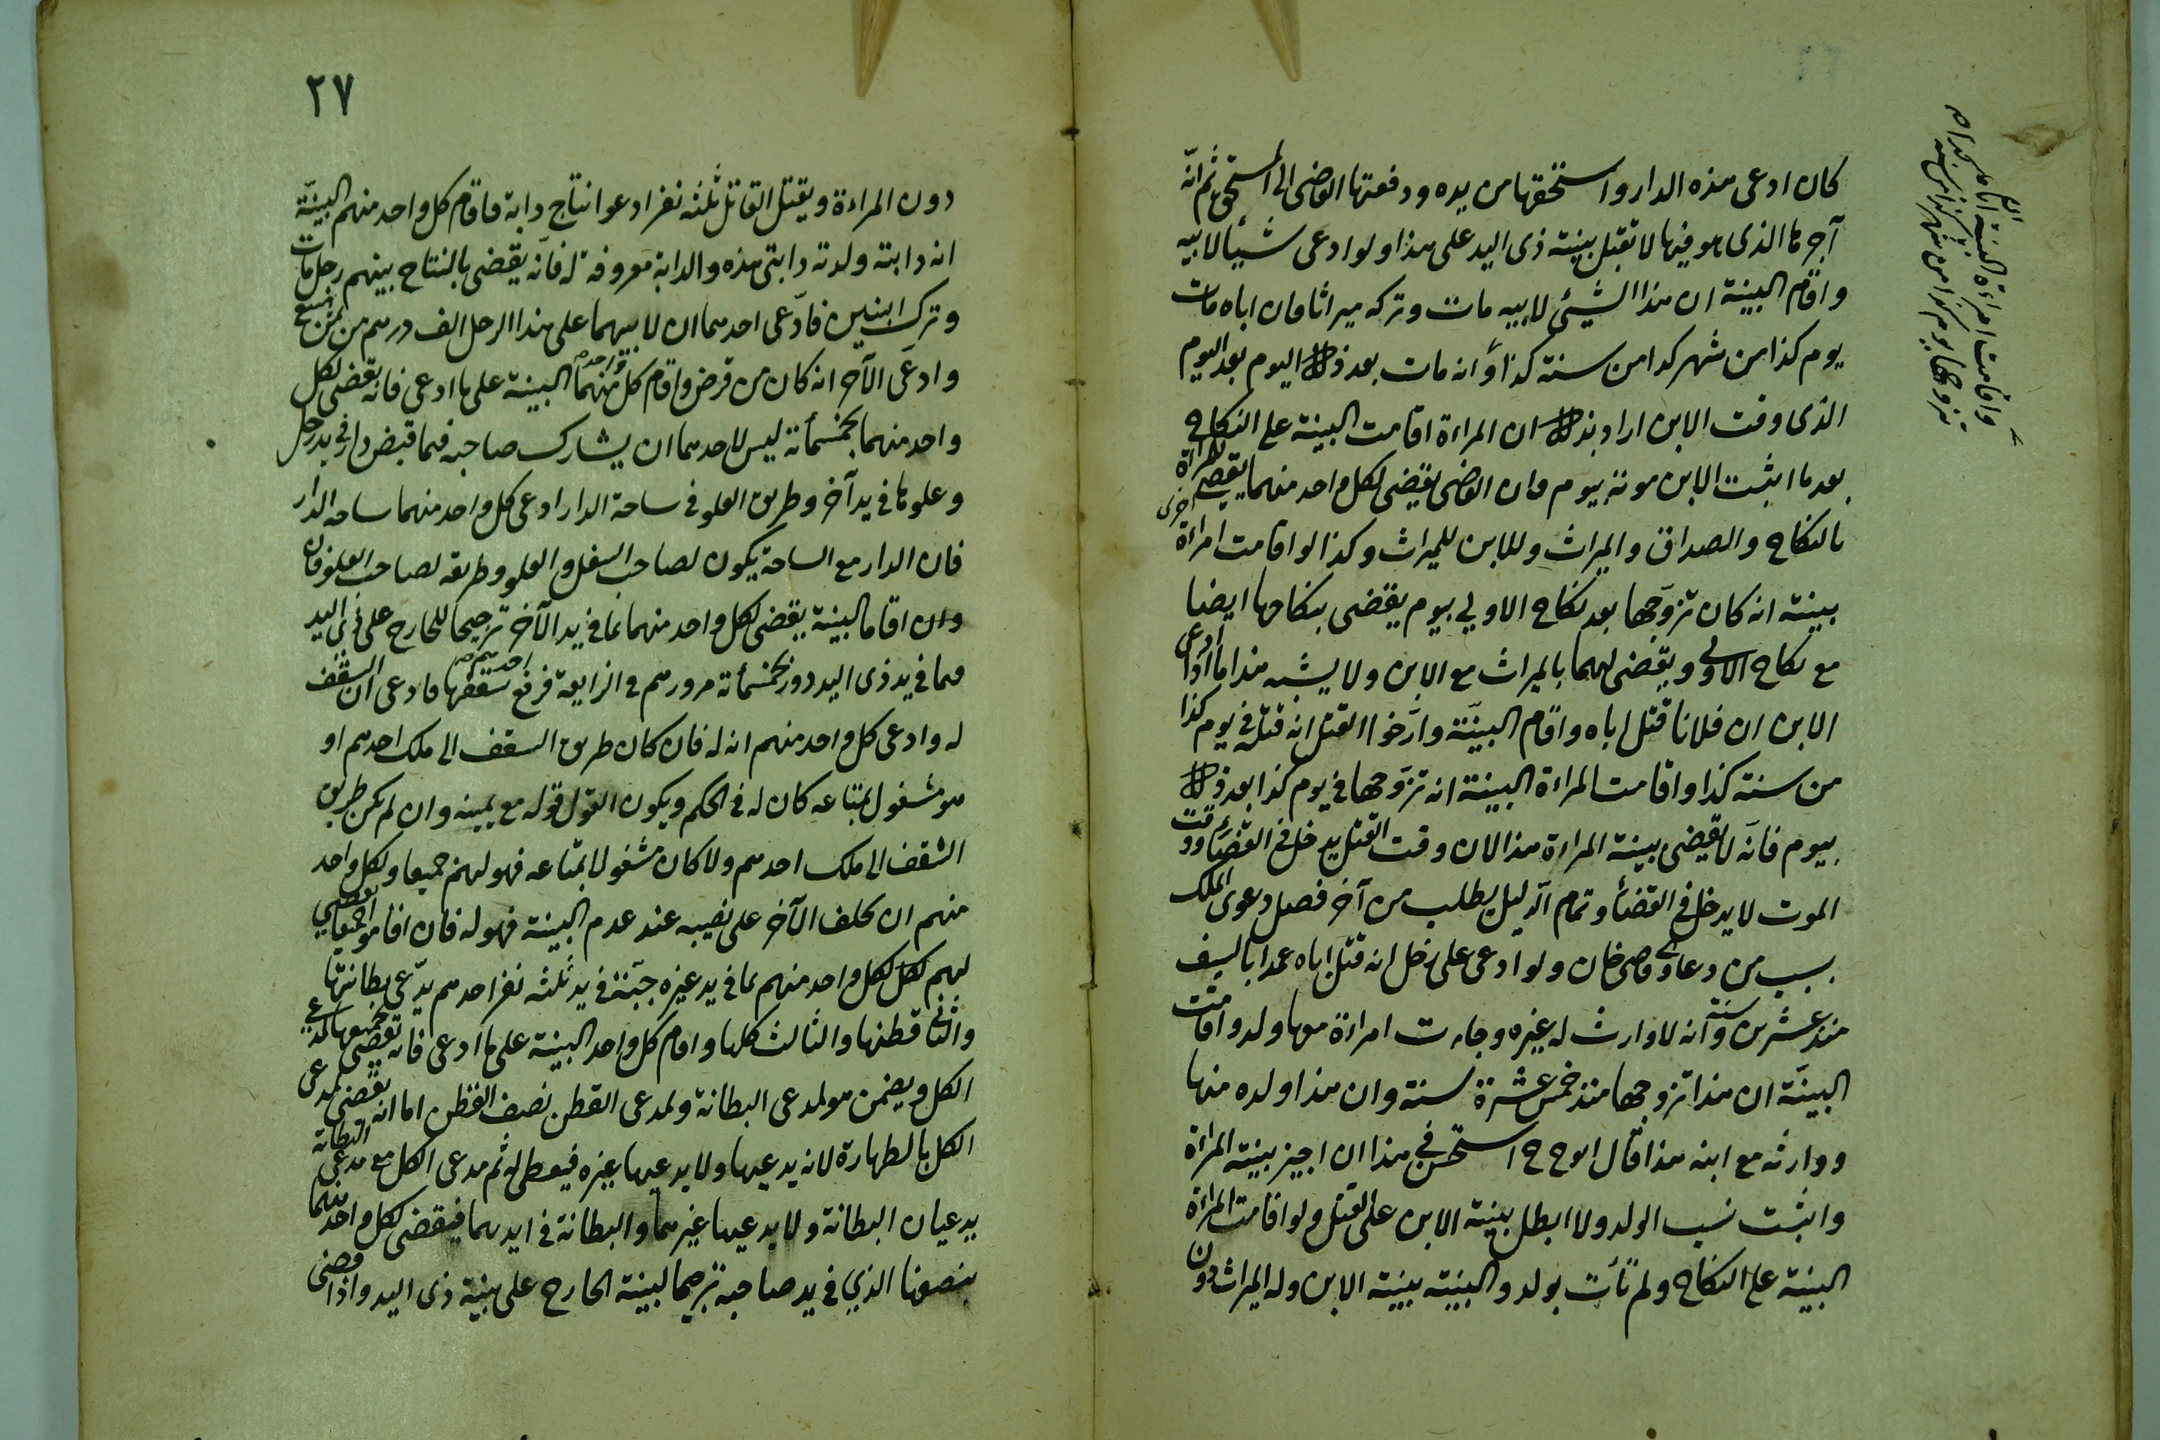 كان ادعى هذه الدار واستحقها من يده ودفعتها القاضى الى المستحق ثم انّه
آجرها الذى هو فيها لا تقبل بينة ذى اليد على هذا ولو ادعى شيئا لابيه
واقام البينة ان هذا الشيئ لابيه مات وتركه ميراثا فان اباه مات
يوم كذا من شهر كذا من سنة كذا وانه مات بعد ذلك اليوم بعد اليوم
الذى وقت الابن اراد بذلك ان المراءة اقامت البينة على النكاح
بعد ما اثبت الابن موته بيوم فان القاضى يقضى لكل واحد منهما يقضى للمراة
بالنكاح والصداق والميراث وللابن للميراث وكذا لو اقامت امراة اخرى
بينة انه كان تزوّجها بعد نكاح الاولى بيوم يقضى بنكاحها ايضا
مع نكاح الاولى ويقضى لهما بالميراث مع الابن ولا يشبه هذا ما اذا ادعى
الابن ان فلانا قتل اباه واقام البينّة وارّخوا القتل انه قتله فى يوم كذا
من سنة كذا واقامت المراءة البينة انه تزوّجها فى يوم كذا بعد ذلك
بيوم فانّه لا يقضى ببينة المراءة هذا لان وقت القتل يدخل فى القضاء ووقت
الموت لا يدخل فى القضاء وتمام الدليل يطلب من آخر فصل دعوى الملك
بسبب من دعاوى قاضى خان ولو ادعى على رجل انه قتل اباه عمدا بالسيف
منذ عشرين سنة وانه لا وارث له غيره وجاءت امراءة معها ولد واقامت
البينّة ان هذا تزوجها منذ خمس عشرة سنة وان هذا ولده منها
ووارثه مع ابنه هذا قال ابو ح استحسن فى هذا ان اجيز بينة المراءة
واثبت نسب الولد ولا ابطل بينة الابن على القتل ولو اقامت المراءة
البينة على النكاح ولم تأت بولد والبينة بينة الابن وله الميراث دون
واقامت امراءة البينة
تزوجها يوم كذا من شهر كذا من سنة
٢٧
دون المراءة ويقتل القاتل ثلثه نفر ادعوا نتاج دابة فاقام كل واحد منهم البينّة
انه دابته ولدته دابتى هذه والدابة معروفة له فانه يقضى بالنتاج بينهم رجل مات
وترك ابنين فادّعى احدهما ان لابيهما على هذا الرجل الف درهم من ثمن مبيع
وادعى الآخر انه كان من قرض واقام كل واحد منهما البينة على ما ادعى فانه يقضى لكل
واحد منهما بخمسمأة ليس لاحدهما ان يشارك صاحبه فيما قبض دار فى يد رجل
وعلوها فى يد آخر وطريق العلو فى ساحة الدار ادعى كل واحد منهما ساحه الدار
فان الدار مع الساحة يكون لصاحب السفل والعلو وطريقه لصاحب العلو فان
وان اقاما البينة يقضى لكل واحد منهما بما فى يد الآخر ترجيحا للخارج على ذى اليد
فما فى يد ذى اليد دور بخمسمأة فى الرابعة فرفع احدهم سقفها فادعى ان السقف
له وادعى كل واحد منهم انه له فان كان طريق السقف الى ملك احدهم او
هو مشغول بمتاعه كان له فى الحكم ويكون القول قوله مع يمينه وان لم يكن طريق
السقف الى ملك احدهم ولا كان مشغولا بمتاعه فهو لهم جميعا ولكل واحد
منهم ان يحلف الآخر على نصيبه عند عدم البينة فهو له فان اقاموا جميعا يقضى
لهم لكل واحد منهم بما فى يد غيره جبّة فى يد ثلثه نفر احدهم يدّعى بطانتها
والثانى قطنها والثالث كلها واقام كل واحد البينة على ما ادعى فانه يقضى بجميعها لمدعى
الكل ويضمن هو لمدعى البطانة ولمدعى القطن نصف القطن اما انه يقضى لمدعى
الكل بالظهارة لانه يدعيها ولا يدعيها غيره فيعطى له ثم مدعى الكل مع مدعى البطانة
يدعيان البطانة ولا يدعيها غيرهما والبطانة فى ايديهما فيقضى لكل واحد منهما
بنصفها الذى فى يد صاحبه ترجيحا لبينة الخارج على بينة ذى اليد واذا قضى